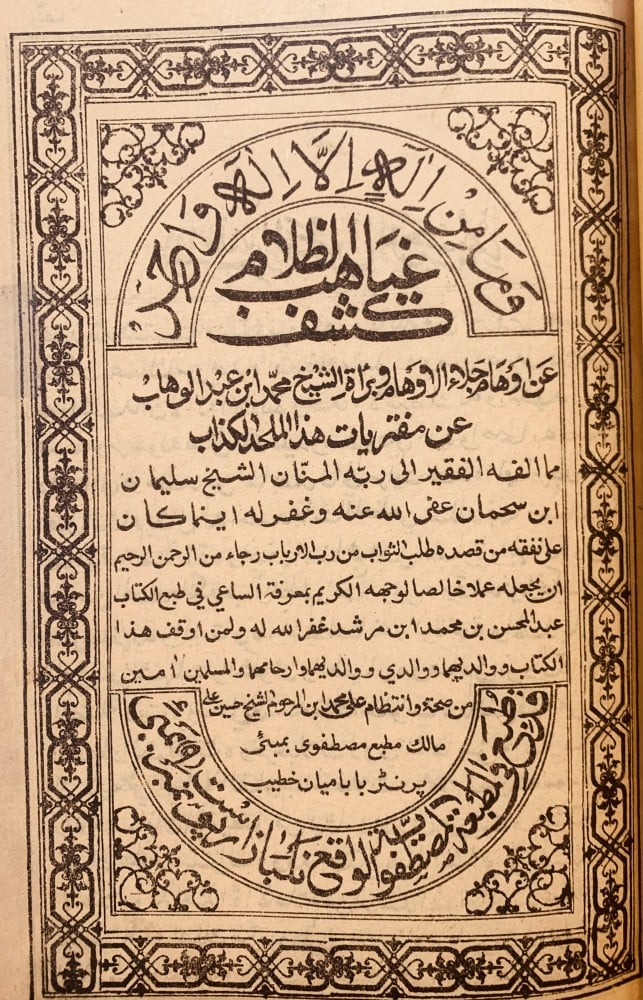 وَمَا مِنْ اِلٰهٍ اِلَّا اِلٰهٌ وَاحِدٌ
غياهب الظلام
كشف
عن اوهام جلاء الاوهام وبراة الشيخ محمد ابن عبد الوهاب
عن مفتريات هذا الملحد الكذاب
مما الفه الفقير الى ربه المنان الشيخ سليمان
ابن سحمان عفى الله عنه وغفر له اينما كان
على نفقه من قصده طلب الثواب من رب الارباب رجاء من الرحمن الرحيم
ان يجعله عملا خالصا لوجهه الكريم بمعرفة الساعي في طبع الكتاب
عبد المحسن بن محمد ابن مرشد غفر الله له ولمن اوقف هذا
الكتاب ووالديهما ووالدي ووالديهما وارحامهما والمسلمين امين
من صحة وانتظام على محمد ابن المرحوم الشيخ حسين على
مالك مطبع مصطفوى بمبئى
پرنٹر بابا ميان خطيب
قد طبع فى المطبعة المصطفوية الواقع بمبئى